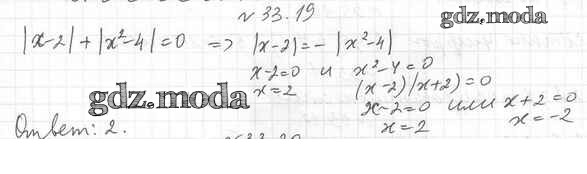 № 33.19
gdz.moda
|x-2| + |x²-4| = 0 => |x-2| = - |x²-4|
x-2=0 и x²-4=0
x=2 (x-2)(x+2)=0
gdz.moda
x-2=0 или x+2=0
x=2 x=-2
Ответ: 2.